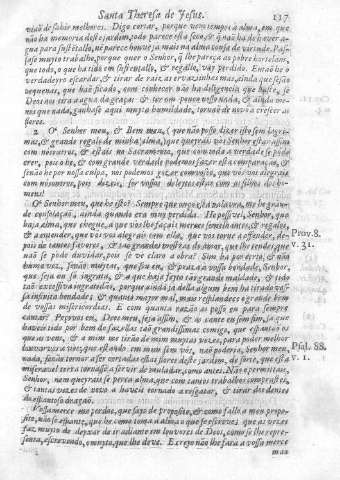 Santa Theresa de Jesus. 117
viaõ de sahir melhores. Digo cortar, porque vem tempos à alma, em que
naõ ha memoria deste jardim, todo parece està seco, & q̃ naõ ha de haver a-
gua para sustẽtallo, nẽ parece houve ja mais na alma cousa de virtude. Pas-
sase muyto trabalho, porque quer o Senhor, q̃ lhe pareça ao pobre hortelam,
que todo, o que ha tido em sustentallo, & regallo, vay perdido. Entaõ he o
verdadeyro escardar, & tirar de raiz as ervazinhas mas, ainda que sejaõ
pequenas, que haõ ficado, com conhecer naõ ha diligencia que baste, se
Deos nos tira a agua da graça; & ter em pouco nosso nada, & ainda me-
nos que nada, ganhase aqui muyta humildade, tornaõ de novo a crescer as
flores.
2. O Senhor meu, & Bem meu, (que naõ posso dizer isto sem lagri-
mas, & grande regalo de minha alma,) que queyrais vòs Senhor estar assim
com nosoutros, & estais no Sacramento, que com toda a verdade se póde
crer, pois o he, & com grande verdade podemos fazer esta comparaçaõ, &
senaõ he por nossa culpa, nos podemos gozar comvosco, que vòs vos alegrais
com nosoutros, pois dizeis, ser vossos deleytes estar com os filhos dos ho-
mens!
O Senhor meu, que he isto? Sempre que ouço esta palavra, me he gran-
de consolaçaõ, ainda quando era muy perdida. He possivel, Senhor, que
haja alma, que chegue, a que vòs lhe façais merces semelhantes, & regalos,
& a entender, que vòs vos alegrais com ella, que vos torne a offender, de-
pois de tantos favores, & taõ grandes mostras do amor, que lhe tendes, que
naõ se póde duvidar, pois se vè claro a obra? Sim ha por certo, & naõ
huma vez, senaõ muytas, que sou eu, & praza a vossa bondade, Senhor,
que seja eu só a ingrata, & a que haja feyto taõ grande maldade, & tido
taõ excessiva ingratidaõ, porque ainda ja della algum bem ha tirado vos-
sa infinita bondade, & quanto mayor mal, mais resplandece o grande bem
de vossas misericordias. E com quanta razaõ as posso eu para sempre
cantar? Peço vos eu, Deos meu, seja assim, & as cante eu sem fim, ja que
haveis tido por bem de fazellas taõ grandissimas comigo, que espantaõ os
que as vem, & a mim me tiraõ de mim muytas vezes, para poder melhor
louvarvos a vòs, que estando em mim sem vòs, naõ poderia, Senhor meu,
nada, senaõ tornar a ser cortadas estas flores deste jardim, de sorte, que esta
miseravel terra tornasse a servir de muladar, como antes. Naõ o permittais,
Senhor, nem queyrais se perca alma, que com tantos trabalhos comprastes,
& tantas vezes de novo a haveis tornado a resgatar, & tirar dos dentes
do espantoso dragaõ.
Vossa merce me perdoe, que sayo de proposito, & como fallo a meu propo-
sito, naõ se espante, que he como toma a alma o que se escreve, que às vezes
faz, muyto de deyxar de ir adiante em louvores de Deos, como se lhe repre-
senta, escrevendo, o muyto, que lhe deve. E creyo naõ lhe fara a vossa merce
mao
Prov. 8.
v. 31.
Psal. 88.
v. 1.